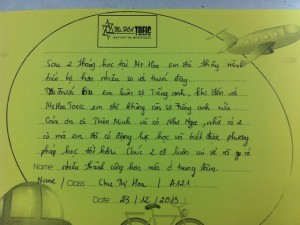 Ms Hoa TOEIC
Sau 2 tháng học tại Ms Hoa em đã thấy mình
tiến bộ hơn nhiều so với trước đây
Trước đây em luôn sợ Tiếng anh, khi đến với
Ms Hoa Toeic em thì không còn sợ Tiếng anh nữa
Cảm ơn cô Thiên Minh và cô Như Ngọc, nhờ có 2
cô mà em đã có động lực học và biết được phương
pháp học tốt hơn. Chúc 2 cô luôn vui vẻ và gặt
Name nhiều thành công hơn nữa ở trung tâm.
Name / Class Chu Thị Hoa / A121
Date 23/12/2013